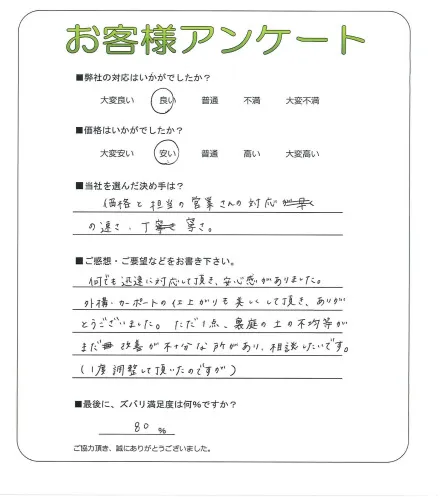 お客様アンケート
■弊社の対応はいかがでしたか?
大変良い 良い 普通 不満 大変不満
■価格はいかがでしたか?
大変安い 安い 普通 高い 大変高い
■当社を選んだ決め手は?
価格と担当の営業さんの対応
の速さ、丁寧さ。
■ご感想・ご要望などをお書き下さい。
何でも迅速に対応して頂き、安心感がありました。
外構・カーポートの仕上がりも美しくして頂き、ありがと
とうございました。ただ1点、裏庭の土の不均等が
まだ改善が不十分な所があり、相談したいです。
(1度調整して頂いたのですが)
■最後に、ズバリ満足度は何%ですか?
80 %
ご協力頂き、誠にありがとうございました。